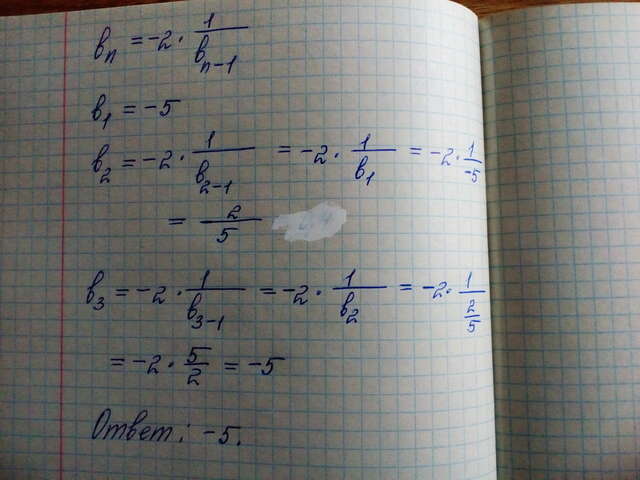 bₙ = -2 · 1/bₙ₋₁
b₁ = -5
b₂ = -2 · 1/b₂₋₁ = -2 · 1/b₁ = -2 · 1/-5
= 2/5
b₃ = -2 · 1/b₃₋₁ = -2 · 1/b₂ = -2 · 1/(2/5)
= -2 · 5/2 = -5
Ответ: -5.